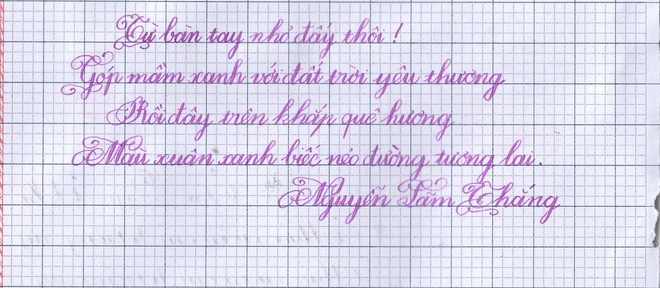 Từ bàn tay nhỏ đấy thôi !
Góp mầm xanh với đất trời yêu thương
Rồi đây trên khắp quê hương
Màu xuân xanh biếc nẻo đường tương lai.
Nguyễn Tâm Thắng